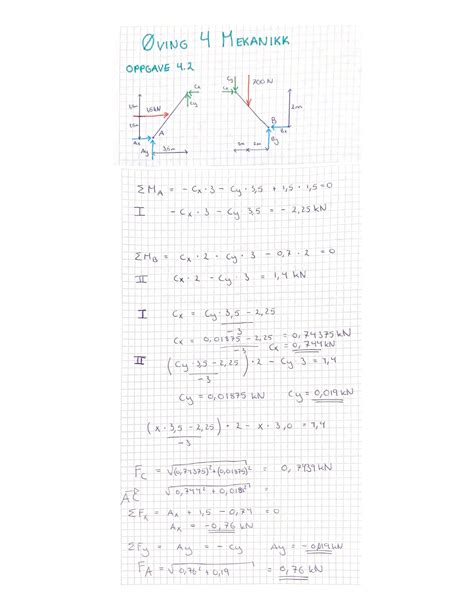 ØVING 4 MEKANIKK
OPPGAVE 4.2
Cx
Cy
1,5m
1,5kN
1,5m
Ax
A
Ay
3,5m
Cy
700N
Cx
2m
B
Bx
By
2m
ΣMA = -Cx·3 - Cy·3,5 + 1,5·1,5=0
I -Cx·3 - Cy 3,5 = -2,25 kN
ΣMB = Cx·2 - Cy·3 - 0,7·2 = 0
II Cx·2 - Cy·3 = 1,4 kN
I Cx = Cy·3,5 - 2,25
-3
Cx = 0,01875 - 2,25 = 0,74375 kN
-3 Cx = 0,744kN
II (Cy·3,5 - 2,25)·2 - Cy·3 = 1,4
-3
Cy = 0,01875 kN Cy = 0,019 kN
(x·3,5 - 2,25)·2 - x·3,0 = 1,4
-3
FC = √(0,74375)²+(0,01875)² = 0,7439 kN
√0,744² + 0,018² =
ΣFx = Ax + 1,5 - 0,74 = 0
Ax = -0,76 kN
ΣFy = Ay = -Cy Ay = -0,019 kN
FA = √0,76² + 0,19 = 0,76 kN